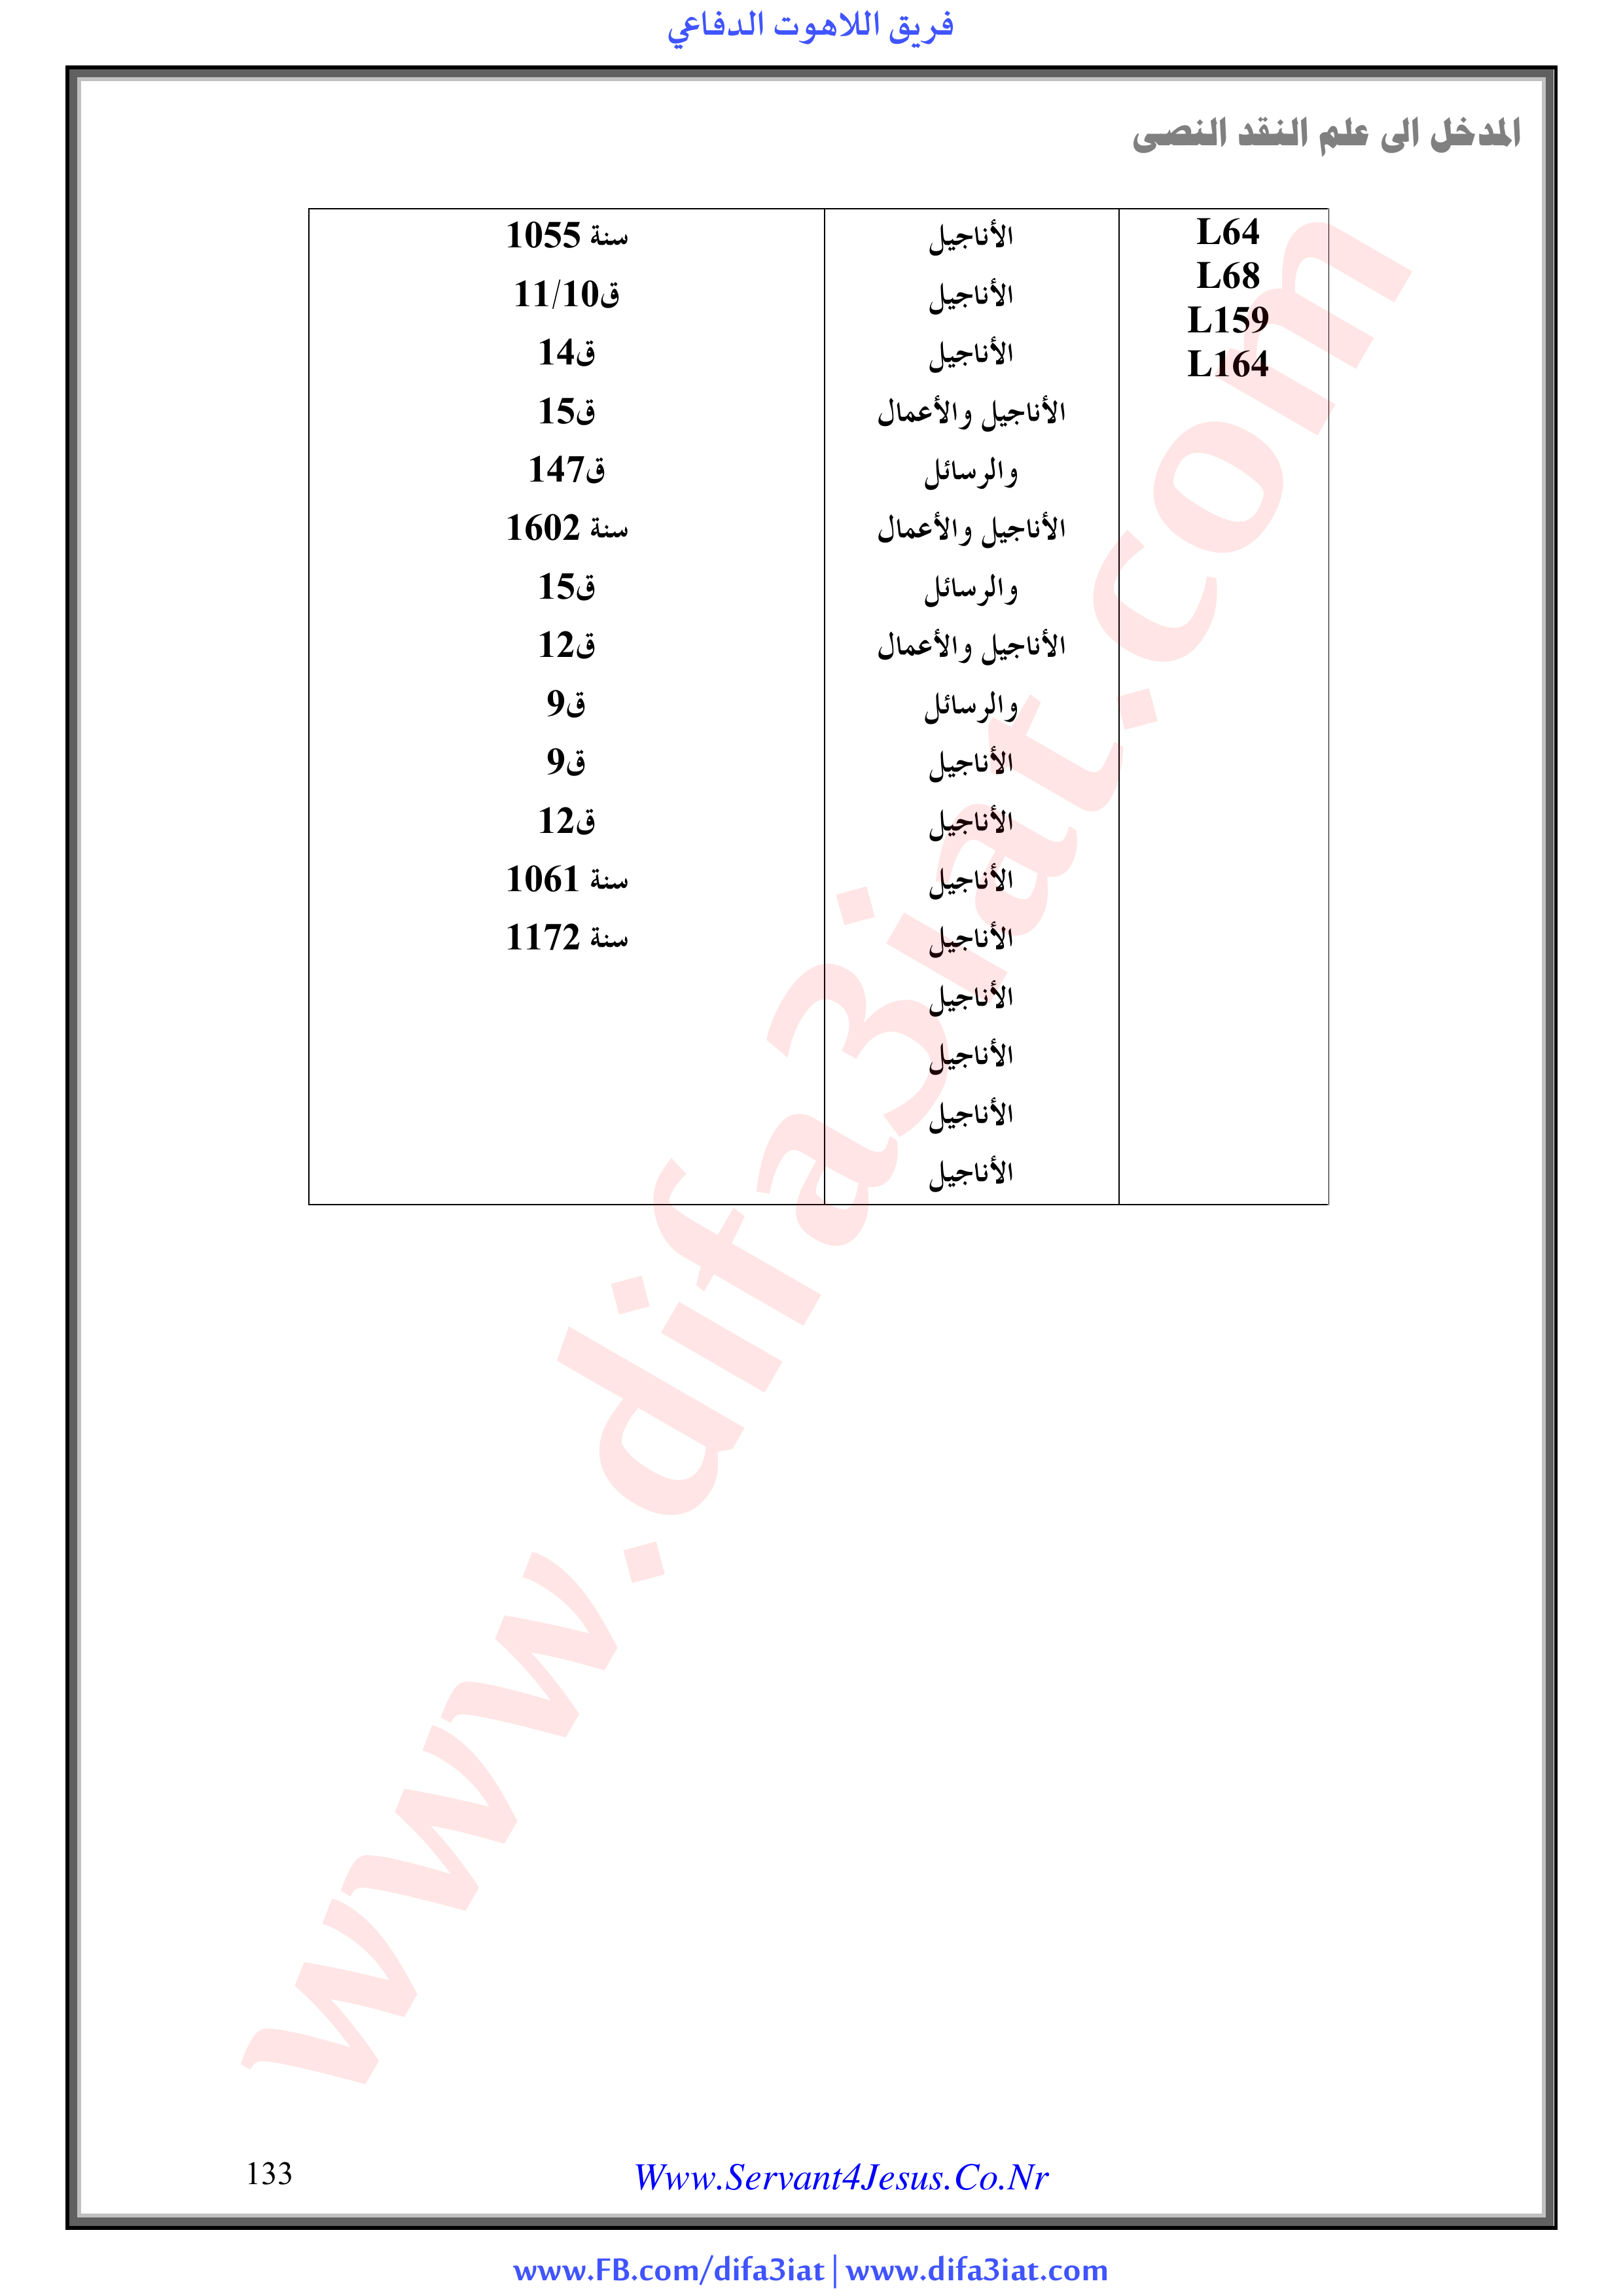 فريق اللاهوت الدفاعي
المدخل الى علم النقد النصى
L64
L68
L159
L164
الأناجيل
الأناجيل
الأناجيل
الأناجيل والأعمال
والرسائل
الأناجيل والأعمال
والرسائل
الأناجيل والأعمال
والرسائل
الأناجيل
الأناجيل
الأناجيل
الأناجيل
الأناجيل
الأناجيل
الأناجيل
الأناجيل
سنة 1055
ق11/10
ق14
ق15
ق147
سنة 1602
ق15
ق12
ق9
ق9
ق12
سنة 1061
سنة 1172
www.difa3iat.com
Www.Servant4Jesus.Co.Nr
133
www.FB.com/difa3iat | www.difa3iat.com